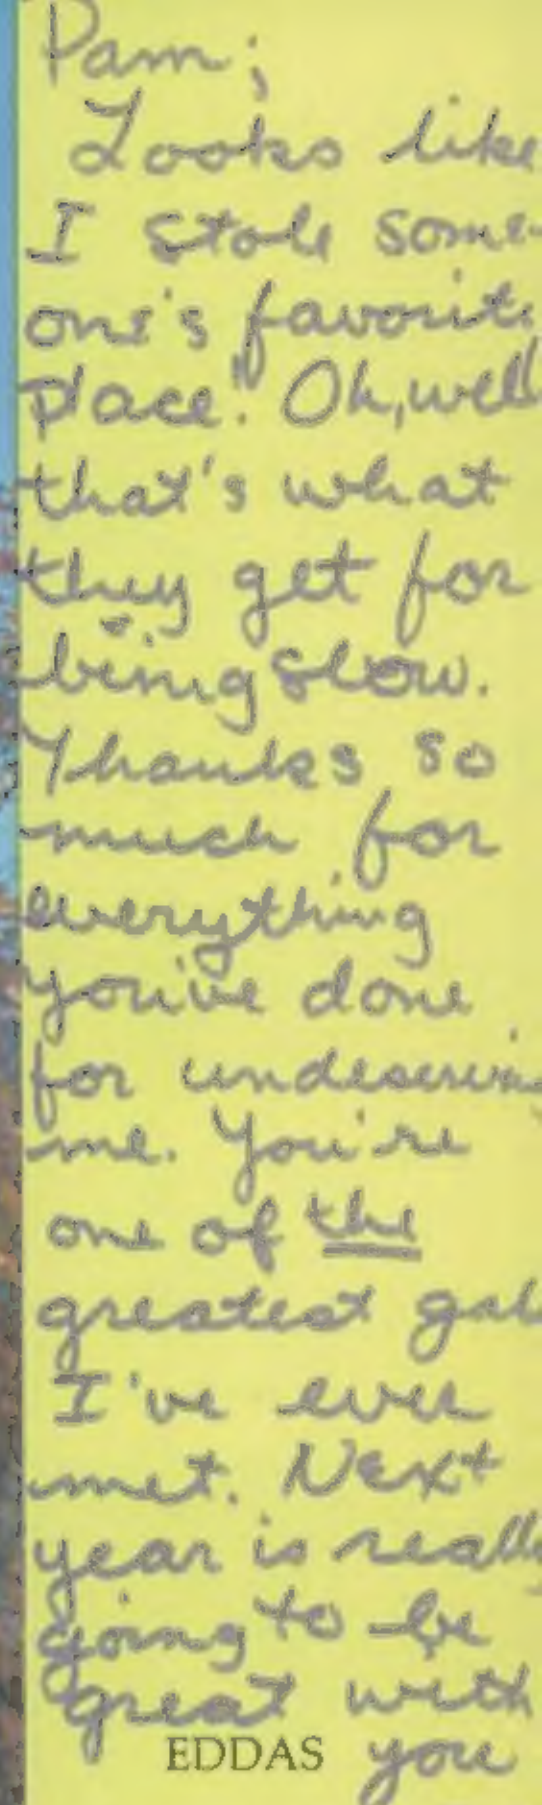 Pam;
Looks like
I stole some-
one's favorite
place!! Oh, well
that's what
they get for
being slow.
Thanks so
much for
everything
you've done
for undeservin
me. You're
one of the
greatest gals
I've ever
met. Next
year is really
going to be
great with
EDDAS you